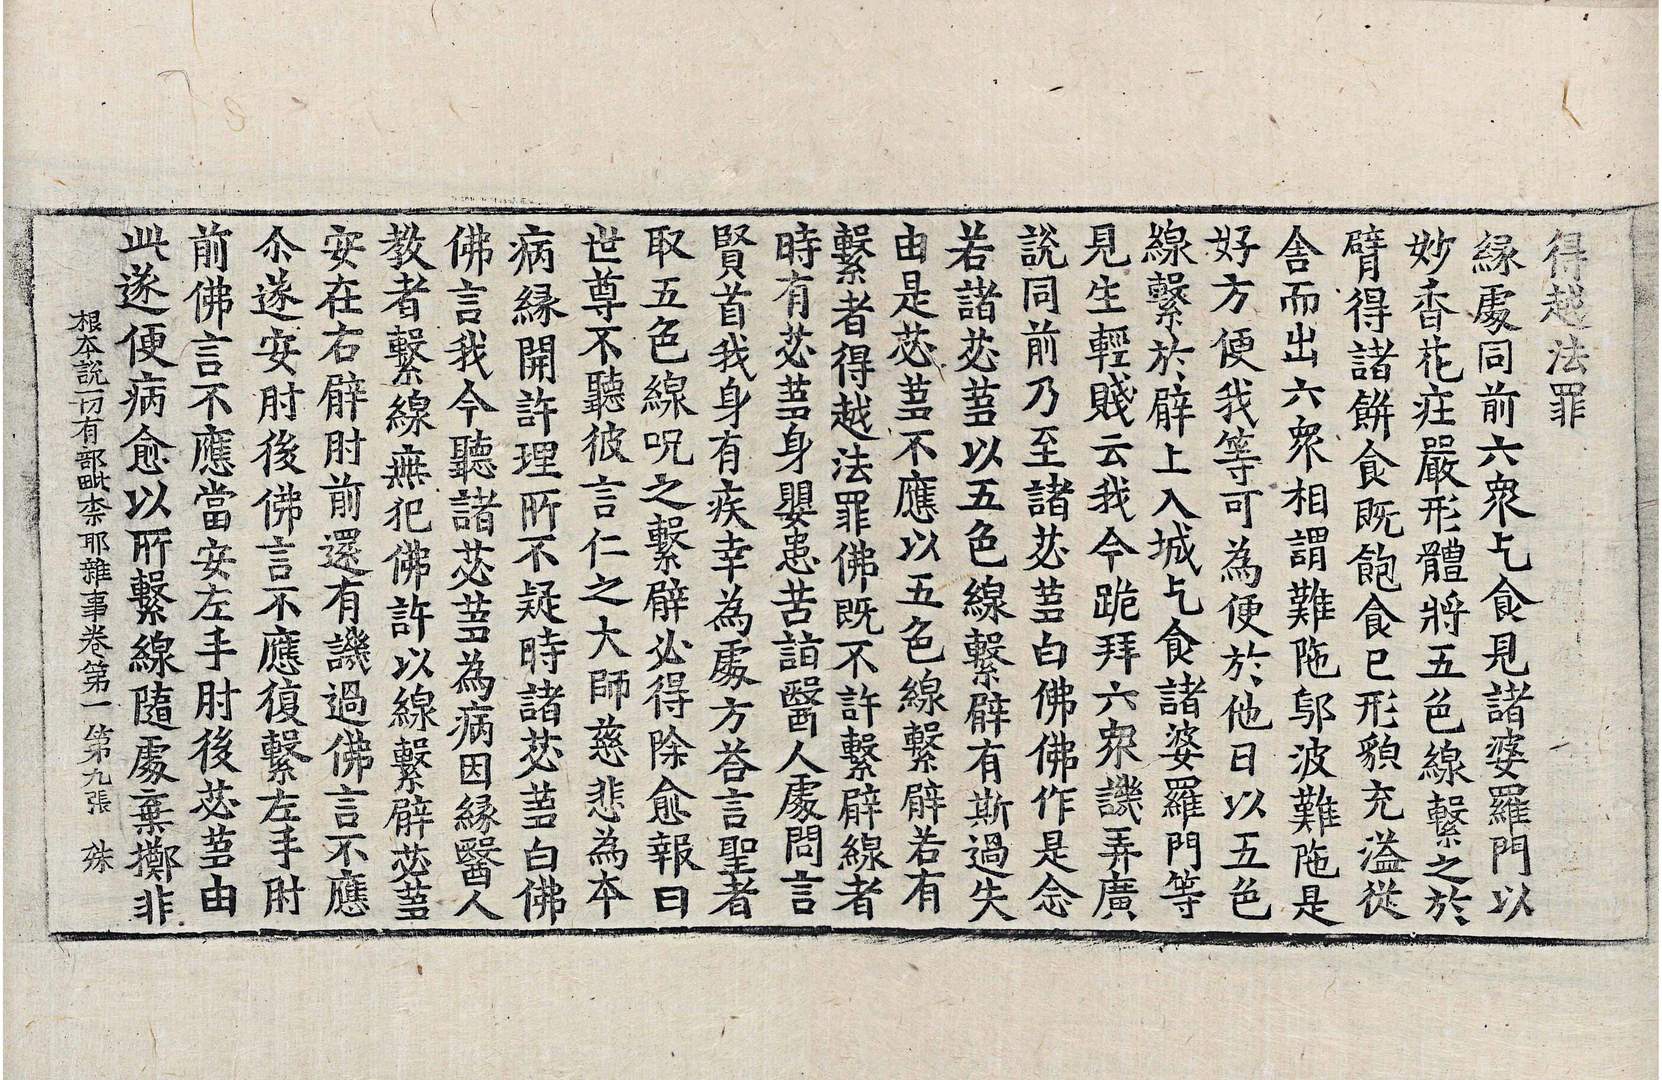 得越法罪
緣處同前六衆乞食見諸婆羅門以
妙香花莊嚴形體將五色線繫之於
臂得諸餅食既飽食已形貌充溢從
舍而出六衆相謂難陁鄔波難陁是
好方便我等可為便於他日以五色
線繫於臂上入城乞食諸婆羅門等
見生輕賤云我今跪拜六衆譏弄廣
說同前乃至諸苾蒭白佛佛作是念
若諸苾蒭以五色線繫臂有斯過失
由是苾蒭不應以五色線繫臂若有
繫者得越法罪佛既不許繫臂線者
時有苾蒭身嬰患苦詣醫人處問言
賢首我身有疾幸為處方荅言聖者
取五色線呪之繫臂必得除愈報曰
世尊不聽彼言仁之大師慈悲為本
病緣開許理所不疑時諸苾蒭白佛
佛言我今聽諸苾蒭為病因緣醫人
教者繫線無犯佛許以線繫臂苾蒭
安在右臂肘前還有譏過佛言不應
尒遂安肘後佛言不應復繫左手肘
前佛言不應當安左手肘後苾蒭由
此遂便病愈以所繫線隨處棄擲非
根本說一切有部毗柰耶雜事卷第一 第九張 殊